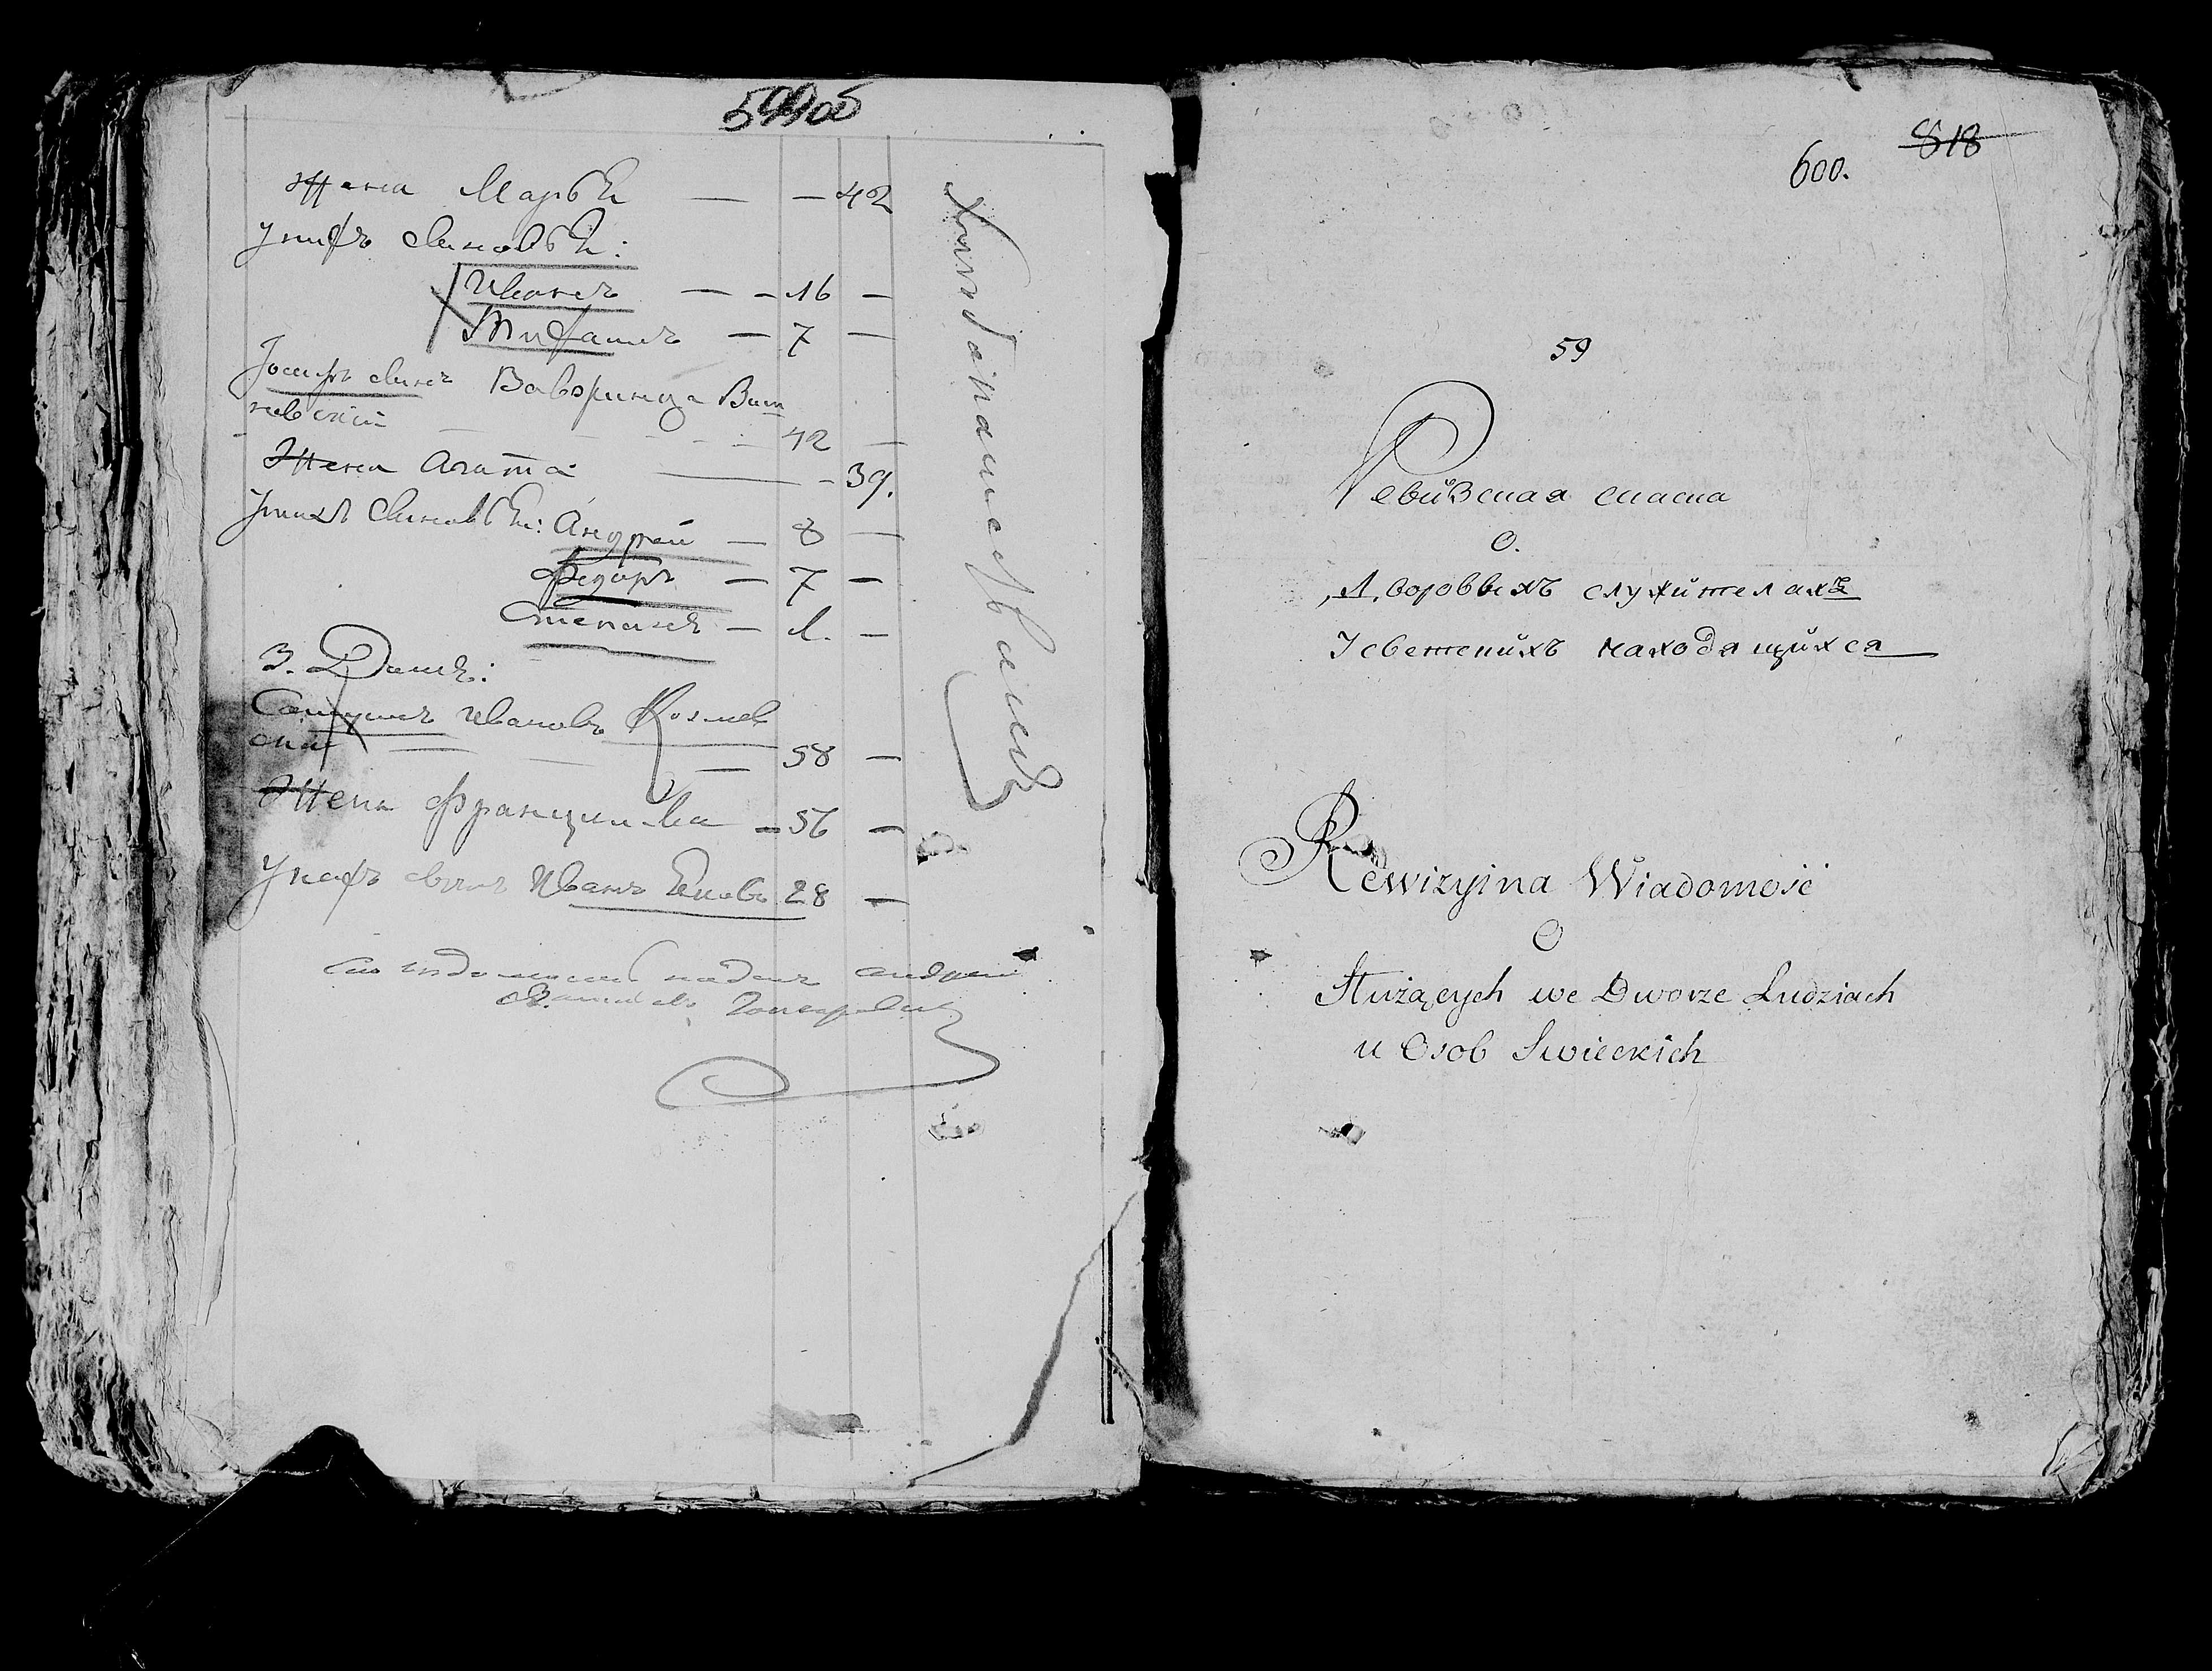 599об
Жена Марья — — 42
У нихъ сыновья:
Иванъ — — 16 —
7 —
Іосифъ сынъ Вавринца Виш
невскій 42 —
Жена Агата — 39.
У нихъ сыновья: Андрей — 8 —
Федоръ — 7 —
Степанъ — 1. —
3. Дымъ:
Ивановъ Козлов
ский — 58 —
Жена Францишка — 56 —
У нихъ сынъ Иванъ 28 —
подалъ Андрей
818
600.
59
Ревизская сказка
О.
Дворовыхъ служителахъ
У светскихъ находящихся
Rewizyina Wiadomość
O
Służących we Dworze Ludziach
u Osob Swieckich